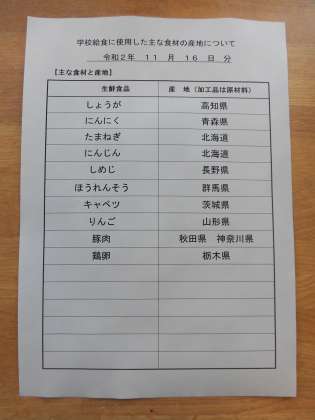 学校給食に使用した主な食材の産地について
令和2年 11 月 16 日 分
【主な食材と産地】
生鮮食品 産 地（加工品は原材料）
しょうが 高知県
にんにく 青森県
たまねぎ 北海道
にんじん 北海道
しめじ 長野県
ほうれんそう 群馬県
キャベツ 茨城県
りんご 山形県
豚肉 秋田県 神奈川県
鶏卵 栃木県